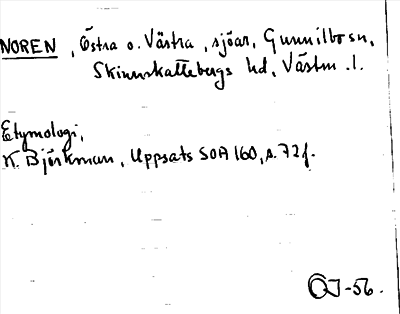 NOREN, Östra o. Västra, sjöar, Gunnilbo sn,
Skinnskattebergs hd, Västm. l.
Etymologi,
K. Björkman, Uppsats SOA 160, s. 72 f.
OJ-56.